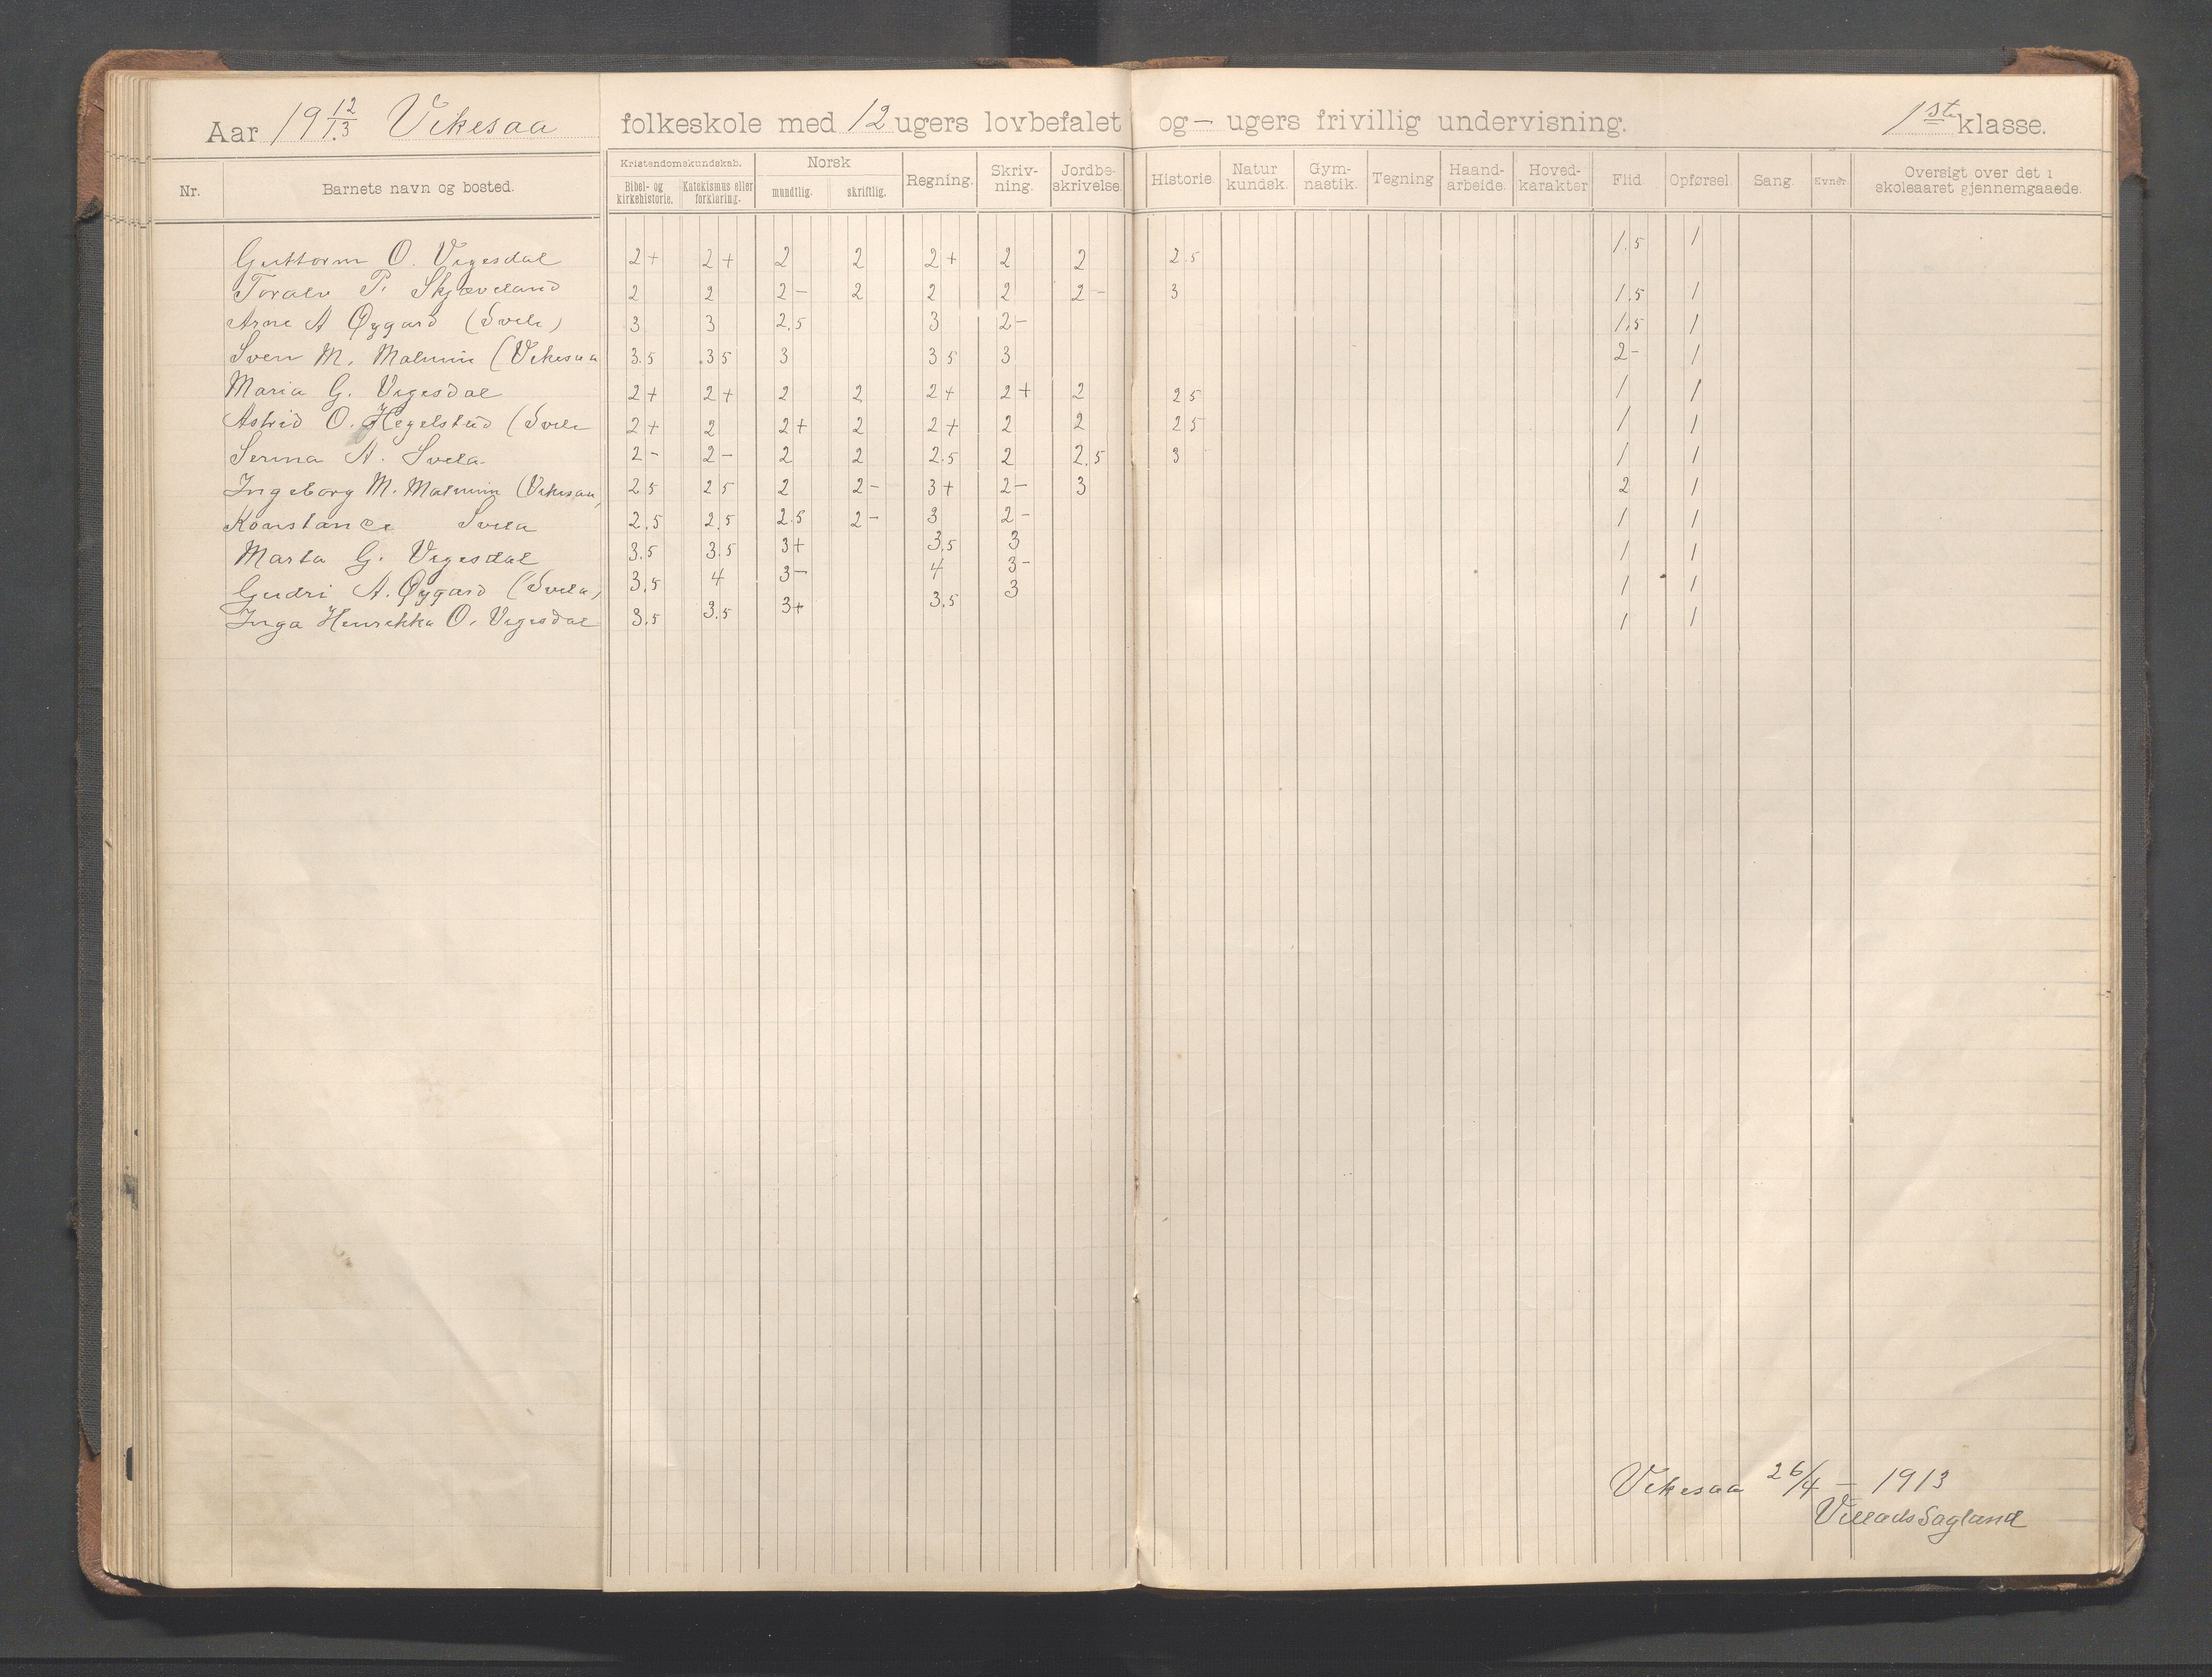 Aar 19 12/13 Vikesaa folkeskole med 12 ugers lovbefalet og – ugers frivillig undervisning. 1ste klasse.
Nr. Barnets navn og bosted. Kristendomskundskab. Bibel- og kirkehistorie. Katekismus eller forklaring. Norsk mundtlig. skriftlig. Regning. Skrivning. Jordbeskrivelse. Historie. Naturkundsk. Gymnastik. Tegning Haandarbeide. Hovedkarakter Flid. Opførsel. Sang. Evner. Oversigt over det i skoleaaret gjennemgaaede.
Guttorm O. Vigesdal 2+ 2+ 2 2 2+ 2 2 2.5 1.5 1
Toralv P. Skjæveland 2 2 2- 2 2 2 2- 3 1.5 1
Arne A Øygard (Svela) 3 3 2.5 3 2- 1.5 1
Sven M. Malmin (Vikesaa 3.5 .35 3 35 3 2- 1
Maria G. Vigesdal 2+ 2+ 2 2 2+ 2+ 2 25 1 1
Astrid O. Hegelstad (Svela 2+ 2 2+ 2 2+ 2 2 25 1 1
Serina A. Svela 2- 2- 2 2 2.5 2 2.5 3 1 1
Ingeborg M. Malmin (Vikesaa) 25 25 2 2- 3+ 2- 3 2 1
Konstance Svela 2.5 2.5 2.5 2- 3 2- 1 1
Marta G. Vigesdal 3.5 3.5 3+ 3.5 3 1 1
Gudri A. Øygard (Svela) 3.5 4 3- 4 3- 1 1
Inga Henrikka O. Vigesdal 3.5 3.5 3+ 3.5 3 1 1
Vikesaa 26/4 – 1913
Villads Sagland